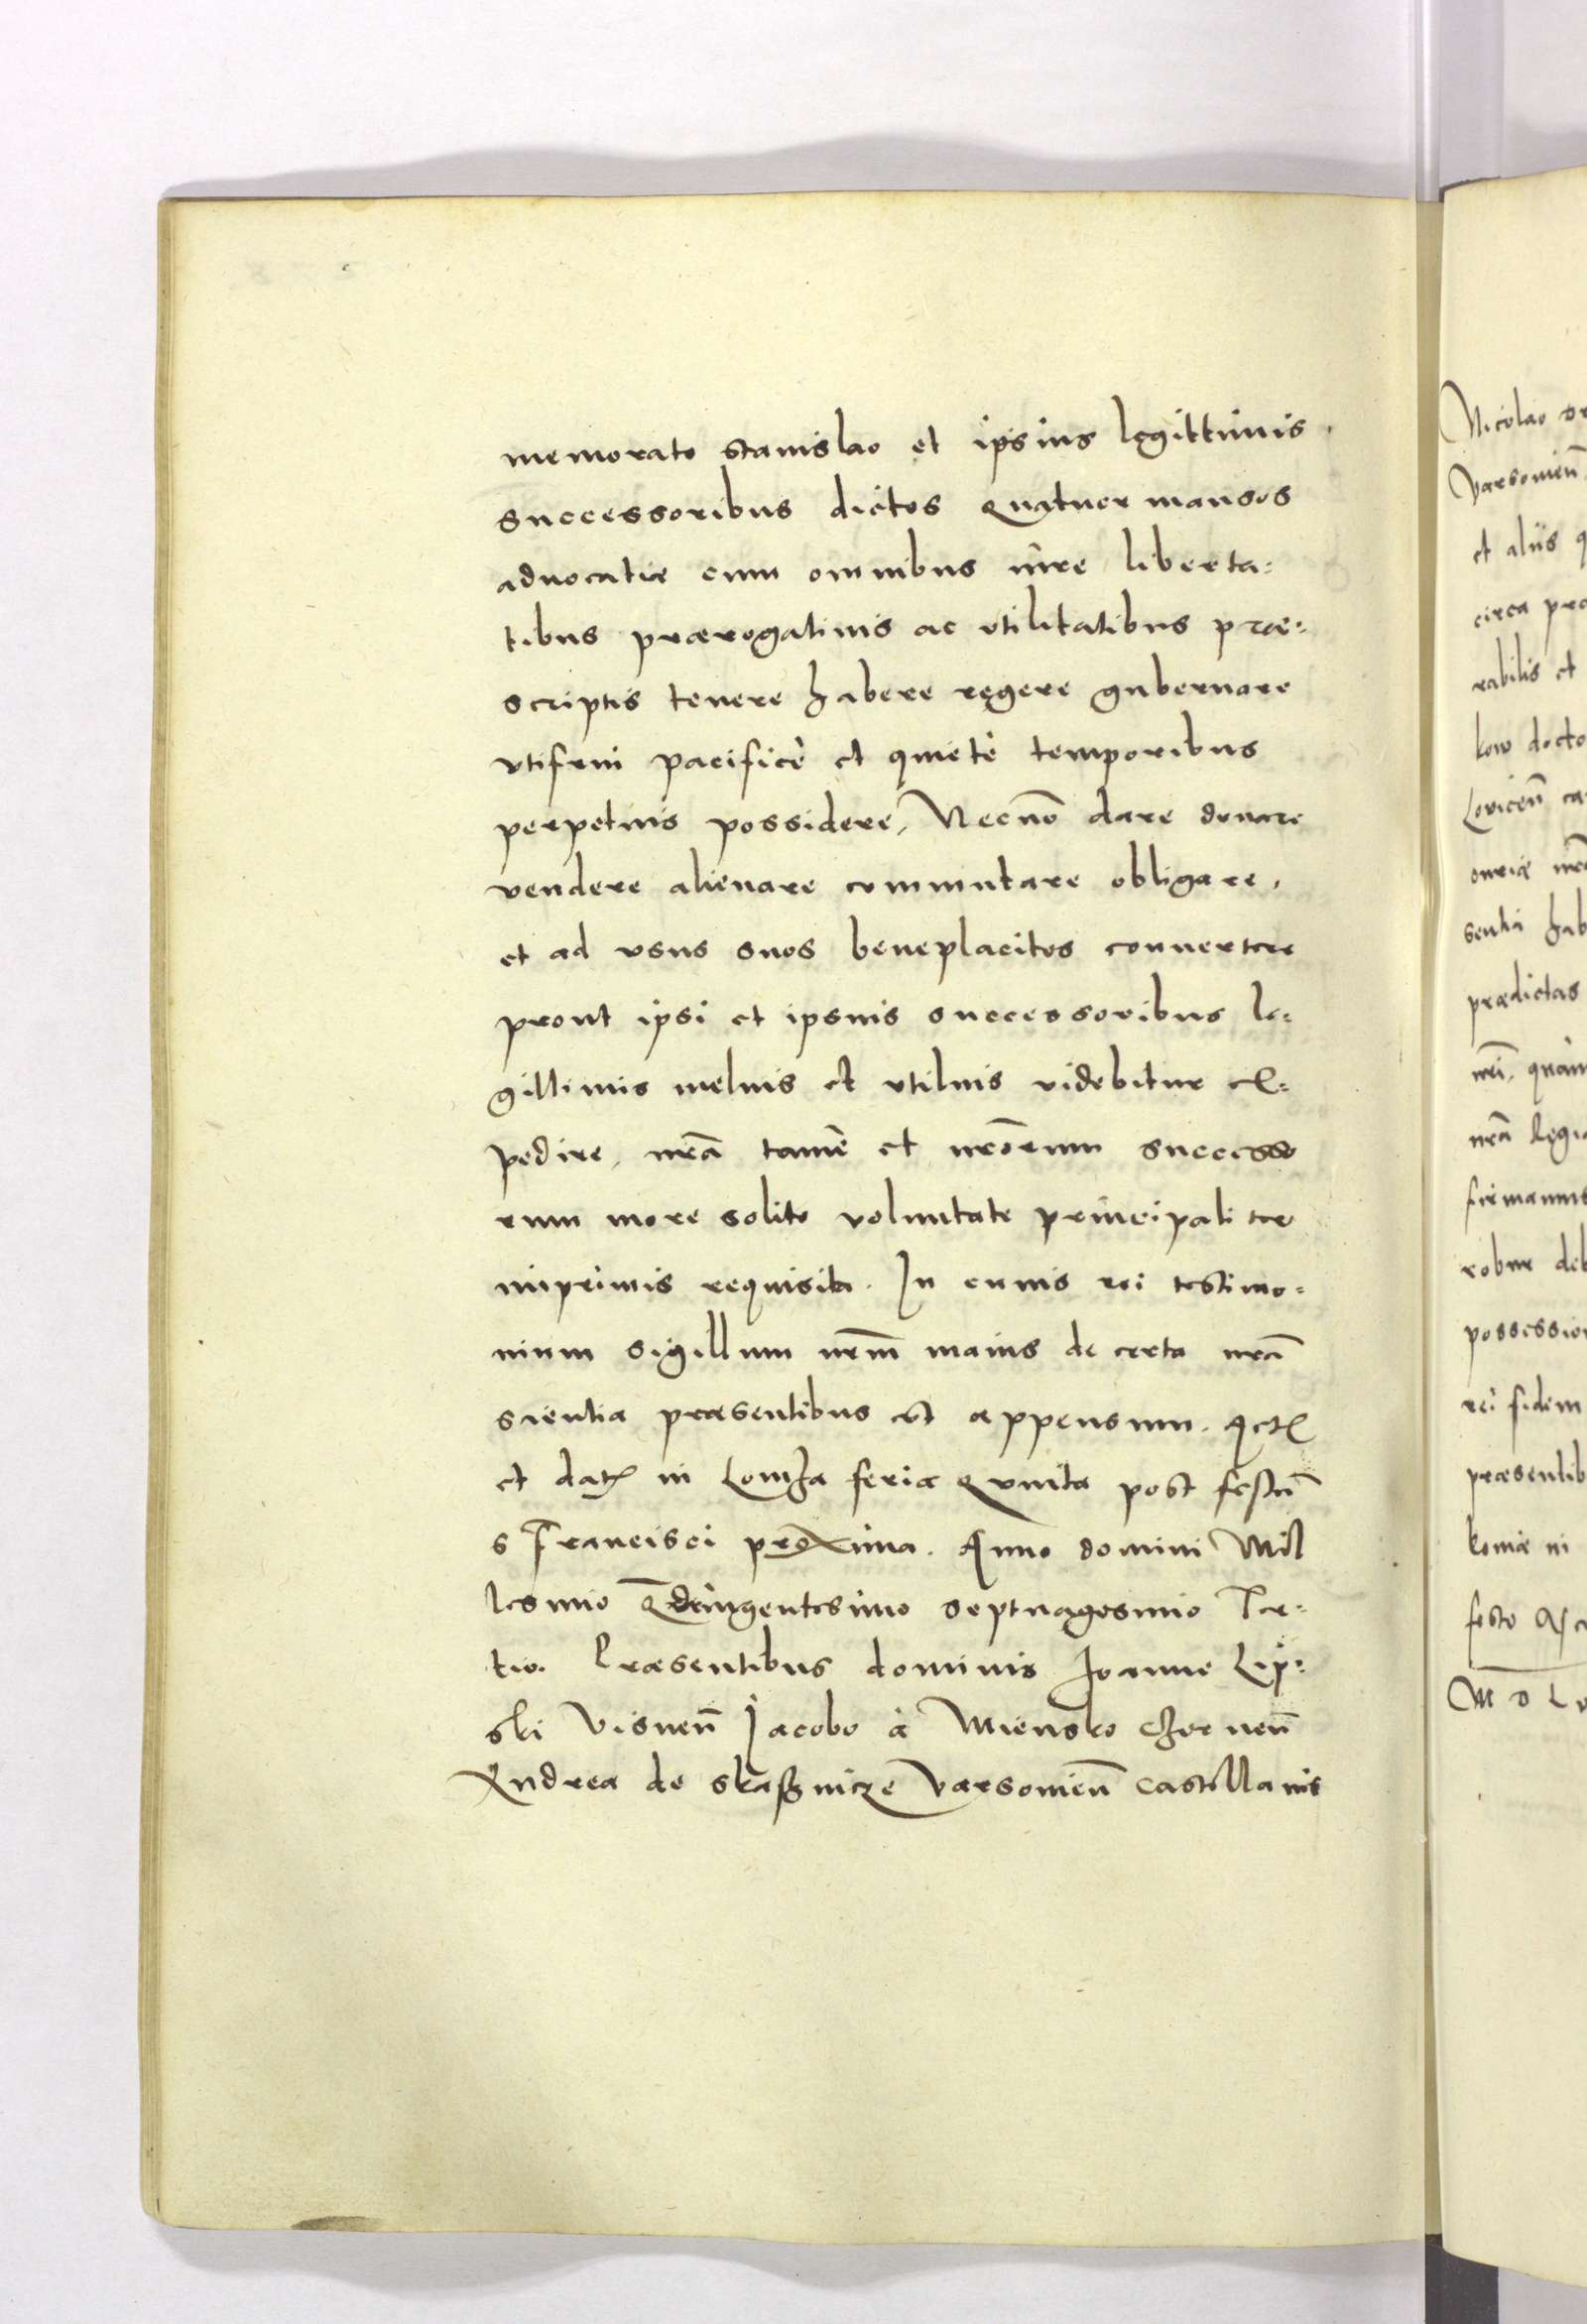 memorato stanislao et ipsius legittimis
successoribus dictos quatuor mansos
aduocatiæ cum omnibus iure liberta:
tibus prærogatiuis ac vtilitatibus præ:
scriptis tenere habere regere gubernare
vtifrui pacificè et quietè temporibus
perpetuis possidere, Necnō dare donare
vendere alienare commutare obligare,
et ad vsus suos beneplacitos conuertere
prout ipsi et ipsius successoribus le:
gittimis melius et vtilius videbitur ex:
pedire, nr̄a tamē et nr̄orum successo
rum more solito voluntate principaliter
inprimis requisita. In cuius rei testimo:
nium sigillum nr̄m maius de certa nr̄a
scientia præsentibus est appensum. Act
et dat in Lomza feria quinta post festū
s Francisci proxima. Anno domini Mil
lesimo Q̄dringentesimo septuagesimo Ter:
tio. Præsentibus dominis Joanne Lip:
ski Visnen̄ Jacobo à Miensko Czernen̄
Andrea de skaßnicze Varsouien̄ Castellanis
Nicolao de
Varsouien̄
et aliis q
circa pro
rabilis et
kow docto
Louicen̄ ca
onriæ nr̄æ
sentia hab
prædictas
nr̄i. quam
nr̄a Regia
firmamus
robur deb
possession
rei fidem
præsentib
komiæ in
festo Asce
M D L v